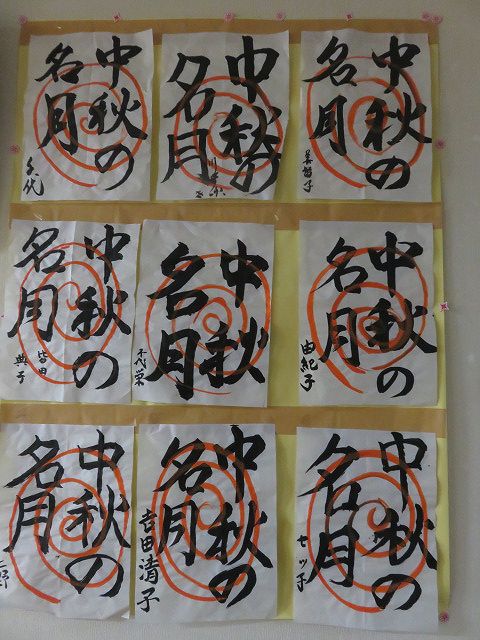 中秋の
名月
千代
中秋の
名月
中秋の
名月
中秋の
名月
典子
中秋
名月
千代栄
中秋の
名月
由紀子
中秋の
名月
中秋の
名月
吉田清子
中秋の
名月
セツ子